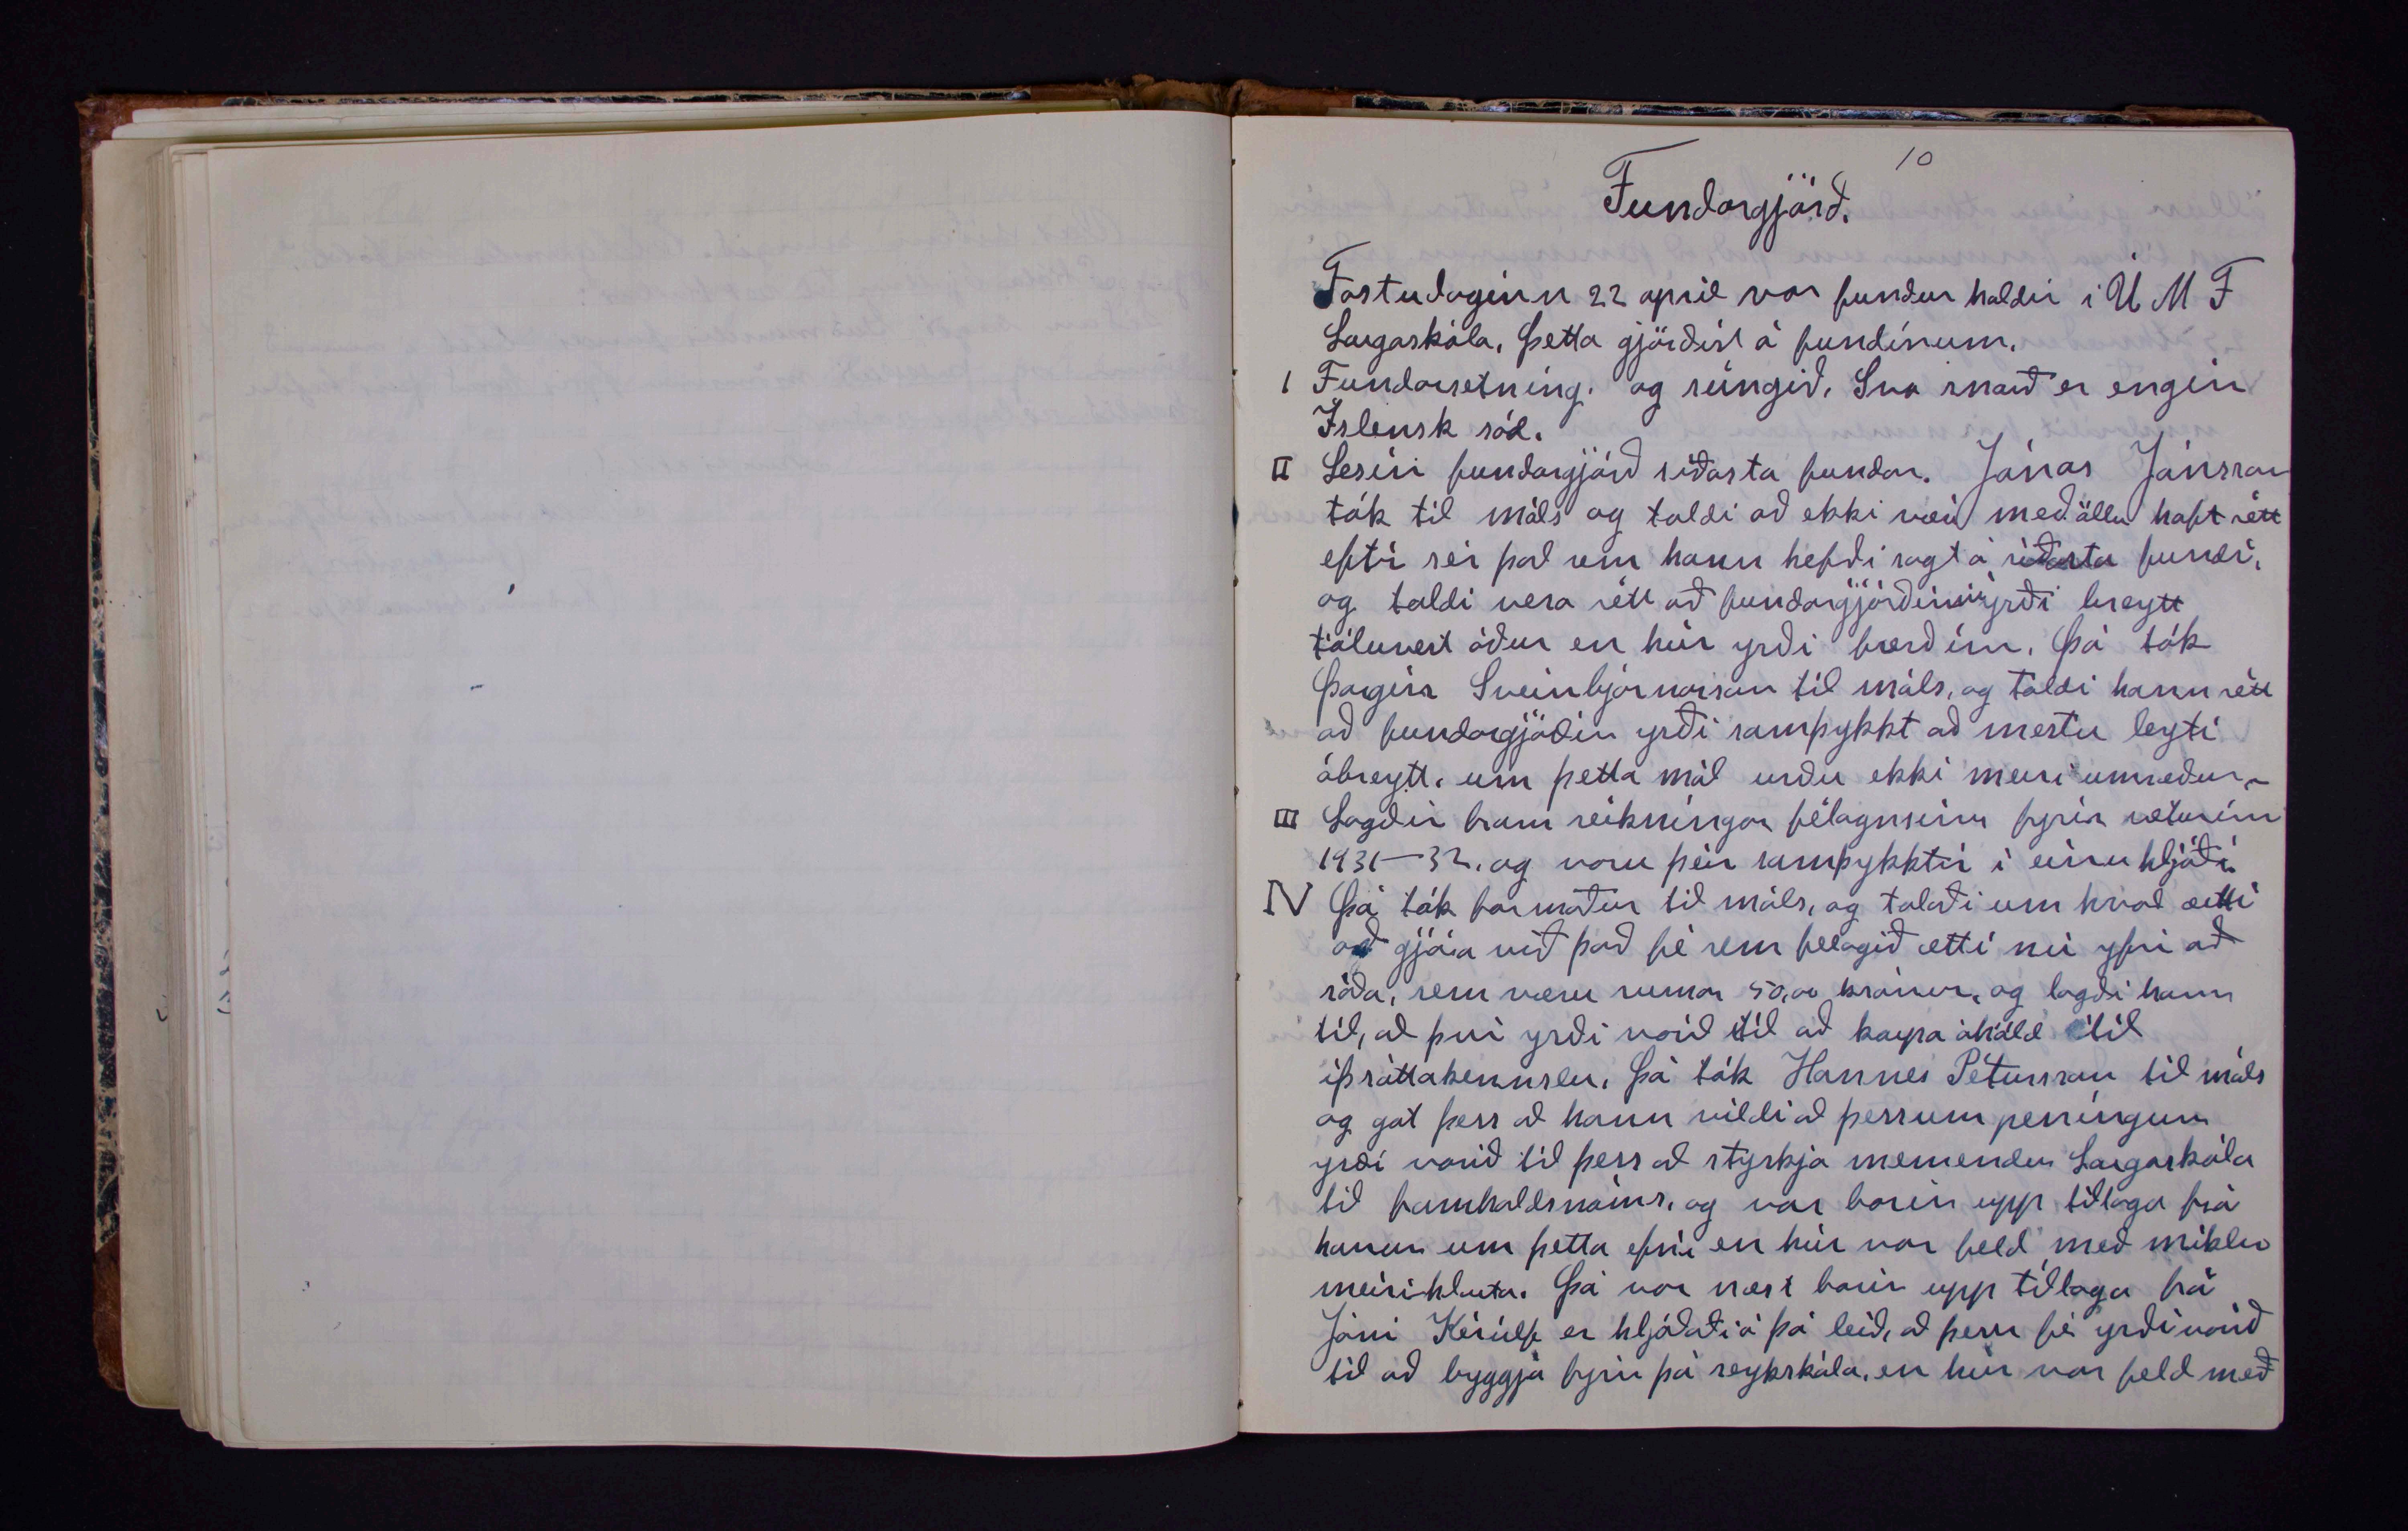 10
Fundargjörð.
Föstudaginn 22 apríl var fundur haldin í U M F
Laugaskóla, Þetta gjörðist á fundínum.
I Fundarsetníng. og súngið, Svo snauð er engin
Íslensk sál.
II Lesin fundargjörð síðasta fundar. Jónas Jónsson
tók til máls og taldi að ekki væri með öllu haft rétt
eftir sér það sem hann hefði sagt á síðasta fundi,
og taldi vera rétt að fundargjörðinni yrði breytt
töluvert áður en hún yrði færð ínn. Þá tók
Þorgeir Sveinbjörnarson til máls, og taldi hann rétt
að fundargjöðin yrði samþykkt að mestu leyti
óbreytt. um þetta mál urðu ekki meiri umræður.
III Lagðir fram reikníngar félagnsins fyrir veturinn
1931–32. og voru þeir samþykktir í einu hljóði.
IV Þá tók formaður til máls, og talaði um hvað ætti
að gjöra við það fé sem félagið ætti nú yfir að
ráða, sem væru rumar 50,00 krónur, og lagði hann
til, að því yrði varið til að kaupa áhöld til
íþróttakennslu. Þá tók Hannes Pétursson til máls
og gat þess að hann vildi að þessum peníngum
yrði varið til þess að styrkja nemendur Laugaskóla
til framhaldsnáms, og var borin upp tillaga frá
hanum um þetta efni en hún var feld með miklu
meirihluta. Þá var næst borin upp tillaga frá
Jóni Kérúlf er hljóðaði á þá leið, að þessu fé yrði varið
til að byggja fyrir þá reykskála, en hún var feld með